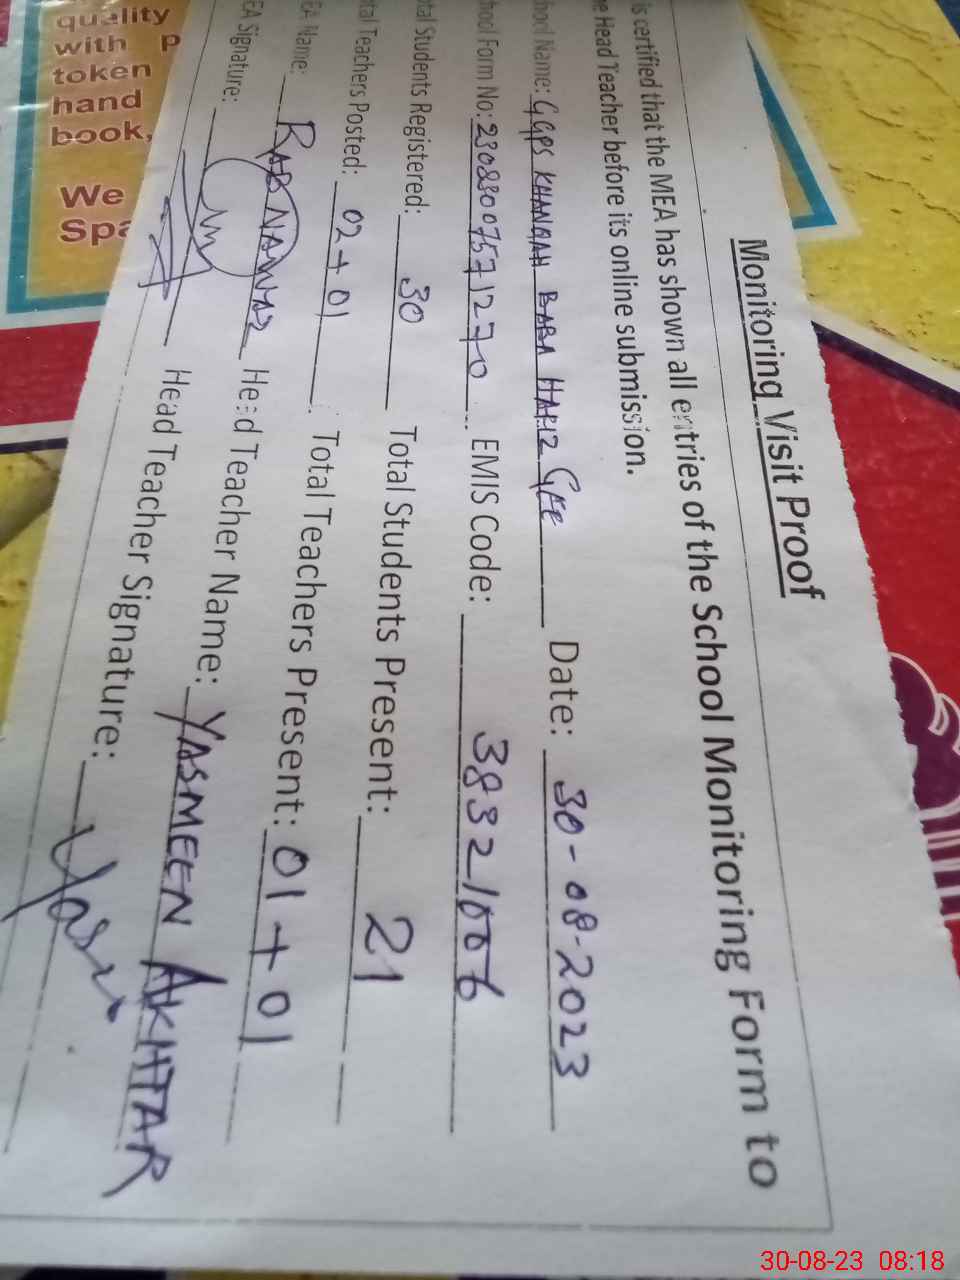 Monitoring Visit Proof
is certified that the MEA has shown all entries of the School Monitoring Form to
Head Teacher before its online submission.
Name: GGPS KHANGAH BABA HAFIZ GEE Date: 30-08-2023
Form No: 2308300757 1270 EMIS Code: 38321006
Students Registered: 30 Total Students Present: 21
Teachers Posted: 02+01 Total Teachers Present: 01+01
Name: RAB NAWAZ Head Teacher Name: YASMEEN AKHTAR
Signature: Head Teacher Signature:
quality
with
token
hand
book,
We
30-08-23 08:18